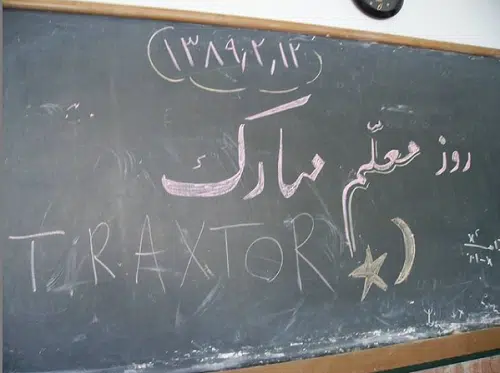 (۱۳۸۹٫۲٫۱۲)
روز معلّم مبارک
TIRAXTOR